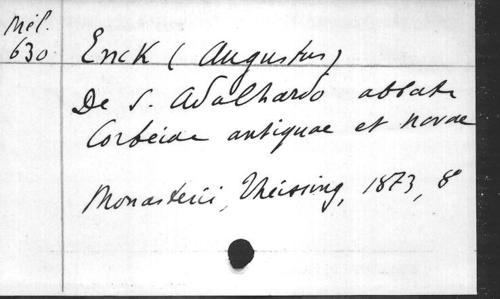 Mél.
630.
Enck (Augustus)
De S. Adalhardo abbate
Corbeiae antiquae et novae
Monasterii, Theissing, 1873, 8°